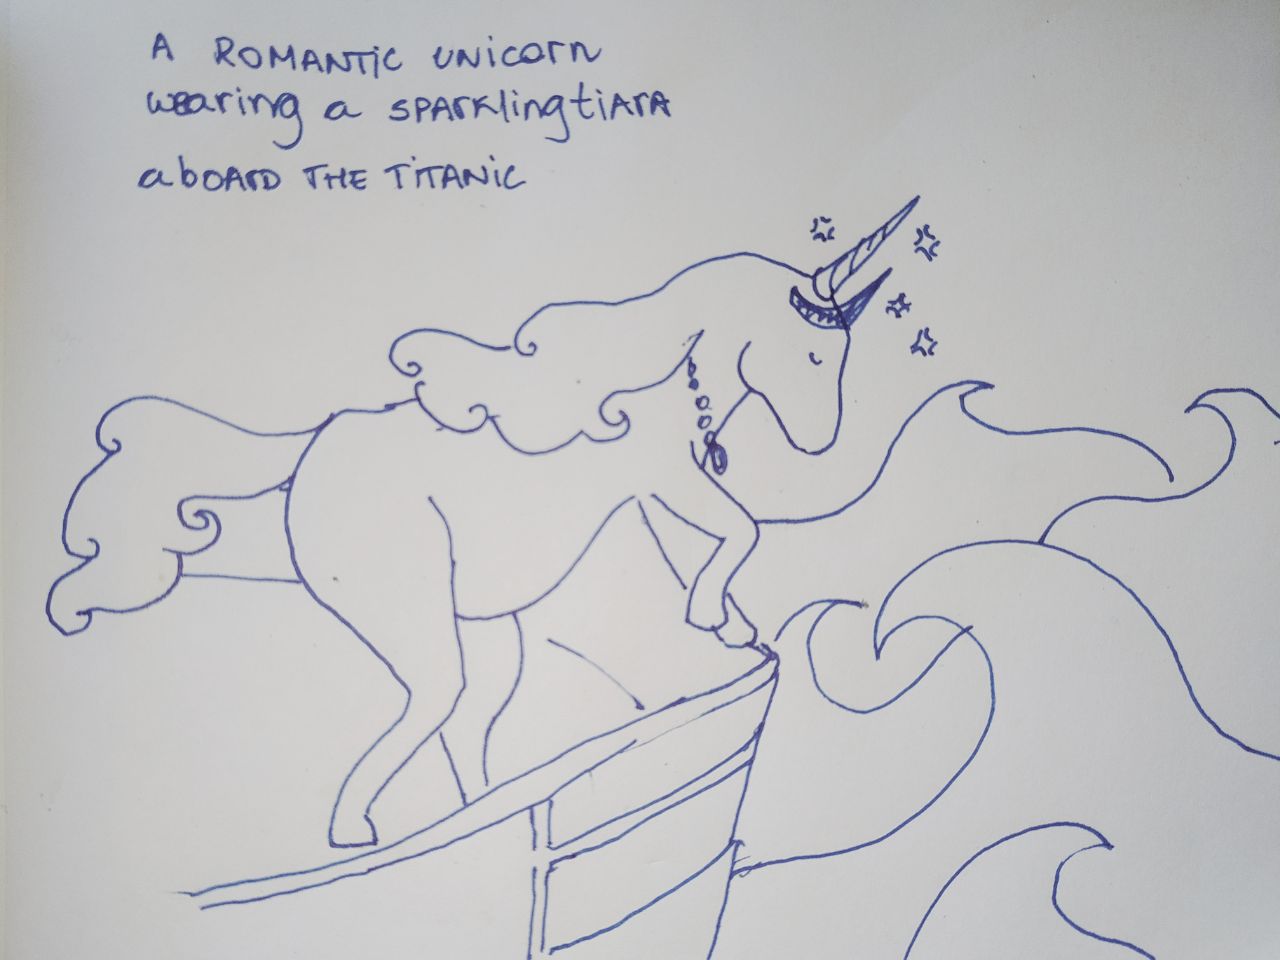 A ROMANTIC UNICORN
wearing a SPARKling tiARA
aboARD THE TITANIC